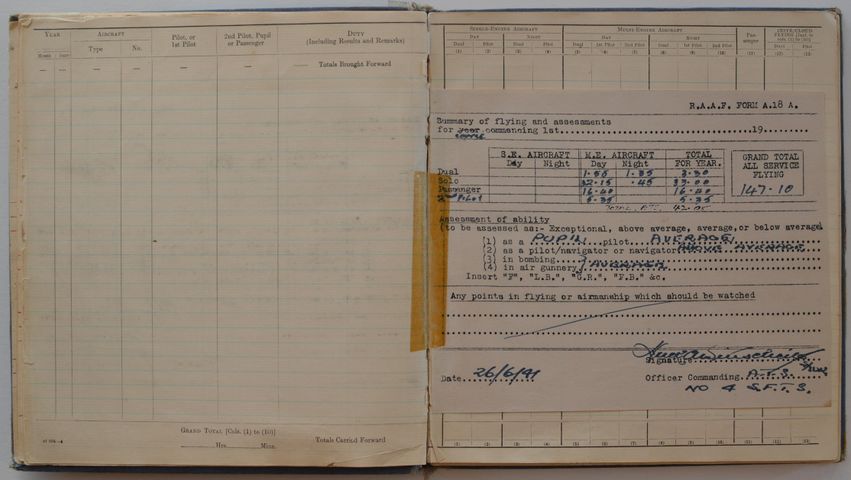 YEAR AIRCRAFT Pilot, or 1st Pilot 2nd Pilot, Pupil or Passenger DUTY (Including Results and Remarks)
Month Date Type No.
— — — — — — — Totals Brought Forward
GRAND TOTAL [Cols. (1) to (10)]
Hrs. Mins.
Totals Carried Forward
SINGLE-ENGINE AIRCRAFT MULTI-ENGINE AIRCRAFT
DAY NIGHT DAY NIGHT
Dual Pilot Dual Pilot Dual 1st Pilot 2nd Pilot Dual 1st Pilot 2nd Pilot Dual Pilot
(1) (2) (3) (4) (5) (6) (7) (8) (9) (10) (11) (12) (13)
R.A.A.F. FORM A.18 A.
Summary of flying and assessments
for year commencing 1st. 19
course
S.E. AIRCRAFT M.E. AIRCRAFT TOTAL
Day Night Day Night FOR YEAR.
Dual 1.55 1.35 3.30
Solo 32.15 .45 33.00
Passenger 16.40 16.40
2nd Pilot 5.35 5.35
GRAND TOTAL
ALL SERVICE
FLYING
147.10
Assessment of ability
(to be assessed as:- Exceptional, above average, average, or below average)
(1) as a PUPIL pilot AVERAGE
(2) as a pilot/navigator or navigator ABOVE AVERAGE
(3) in bombing
(4) in air gunnery AVERAGE
Insert "F", "L.B.", "G.R.", "F.B." &c.
Any points in flying or airmanship which should be watched
Signature
Date 26/6/41 Officer Commanding A.T.S.
NO 4 S.F.T.S.
(1) (2) (3) (4) (5) (6) (7) (8) (9) (10) (11) (12) (13)